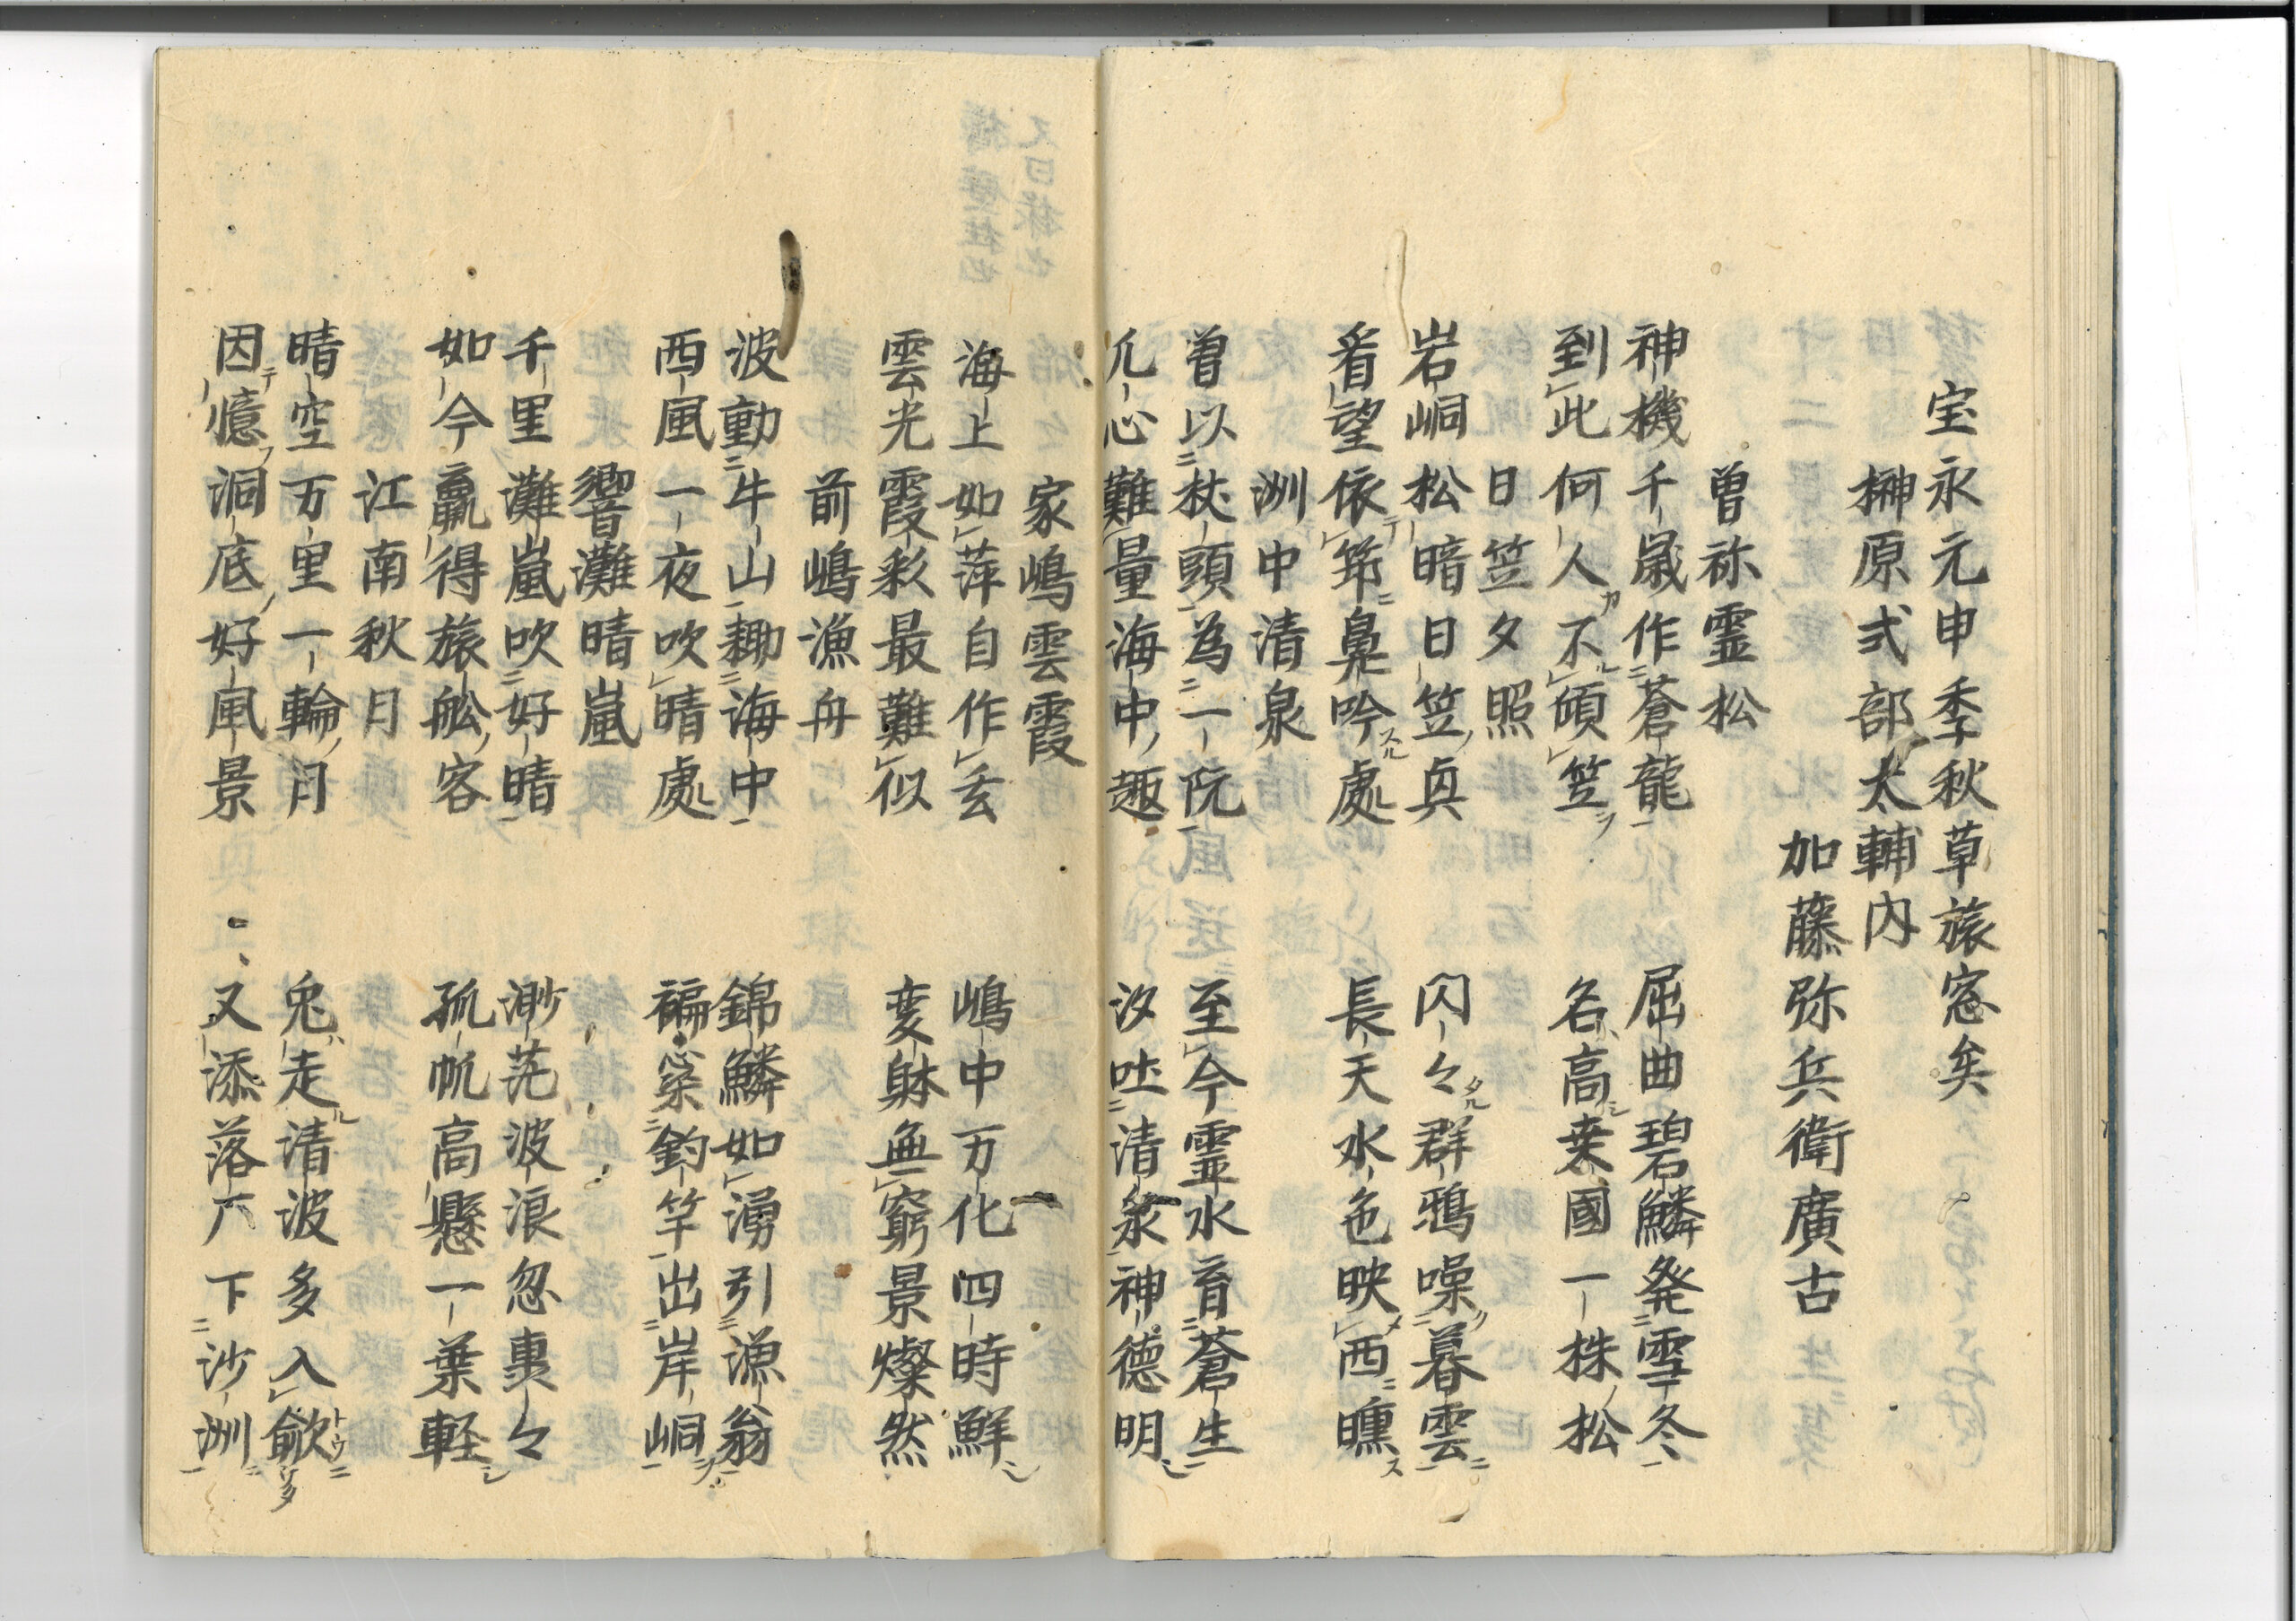 宝永元申季秋草旅窓矣
榊原式部太輔内
加藤弥兵衛廣古
曽祢霊松
神機千歳作蒼龍 屈曲碧鱗発雪冬
到此何人不傾笠 名高葉國一株松
日笠夕照
岩峒松暗日笠真 閃々群鴉噪暮雲
看望依笻鳧吟處 長天水色映西曛
洲中清泉
曽以杖頭為一阬 至今霊水育蒼生
凢心難量海中趣 汐吐清泉神徳明
家嶋雲霞
海上如萍自作玄 嶋中万化四時鮮
雲光霞彩最難似 変躰無窮景燦然
前嶋漁舟
波動牛山耡海中 錦鱗如湧引漁翁
西風一夜吹晴處 褊窠釣竿出岸峒
響灘晴嵐
千里灘嵐吹好晴 渺茫波浪忽裏々
如今贏得旅舩客 孤帆高懸一葉軽
江南秋月
晴空万里一輪月 兎走清波多入歈
因憶洞底好風景 又添落厂下沙洲